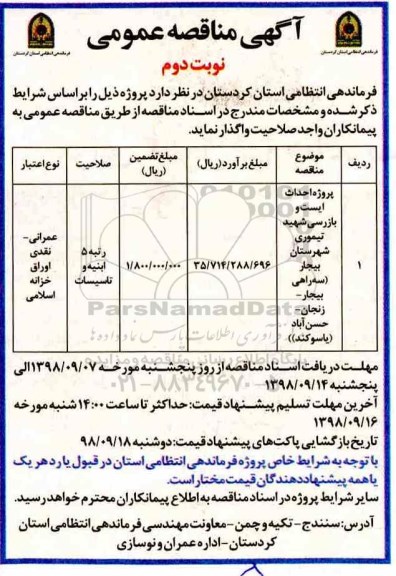 آگهی مناقصه عمومی
فرماندهی انتظامی استان کردستان
فرماندهی انتظامی استان کردستان
نوبت دوم
فرماندهی انتظامی استان کردستان در نظر دارد پروژه ذیل را بر اساس شرایط
ذکر شده و مشخصات مندرج در اسناد مناقصه از طریق مناقصه عمومی به
پیمانکاران واجد صلاحیت واگذار نماید.
ردیف
موضوع
مناقصه
مبلغ برآورد(ریال)
مبلغ تضمین
(ریال)
صلاحیت
نوع اعتبار
۱
پروژه احداث
ایست و
بازرسی شهید
تیموری
شهرستان
بیجار
(سه راهی
بیجار-
زنجان-
حسن آباد
(یاسوکند))
۳۵/۷۱۴/۲۸۸/۶۹۶
۱/۸۰۰/۰۰۰/۰۰۰
رتبه ۵
ابنیه و
تاسیسات
عمرانی-
نقدی
اوراق
خزانه
اسلامی
ParsNamadData
پایگاه اطلاع رسانی مناقصه و مزایده
۰۲۱-۸۸۳۴۹۶۷۰
مهلت دریافت اسناد مناقصه از روز پنجشنبه مورخه ۱۳۹۸/۰۹/۰۷ الی
پنجشنبه ۱۳۹۸/۰۹/۱۴
آخرین مهلت تسلیم پیشنهاد قیمت: حداکثر تا ساعت ۱۴:۰۰ شنبه مورخه
۱۳۹۸/۰۹/۱۶
تاریخ بازگشایی پاکت های پیشنهاد قیمت: دوشنبه ۹۸/۰۹/۱۸
با توجه به شرایط خاص پروژه فرماندهی انتظامی استان در قبول یا رد هر یک
یا همه پیشنهاد دهندگان قیمت مختار است.
سایر شرایط پروژه در اسناد مناقصه به اطلاع پیمانکاران محترم خواهد رسید.
آدرس: سنندج - تکیه و چمن - معاونت مهندسی فرماندهی انتظامی استان
کردستان - اداره عمران و نوسازی